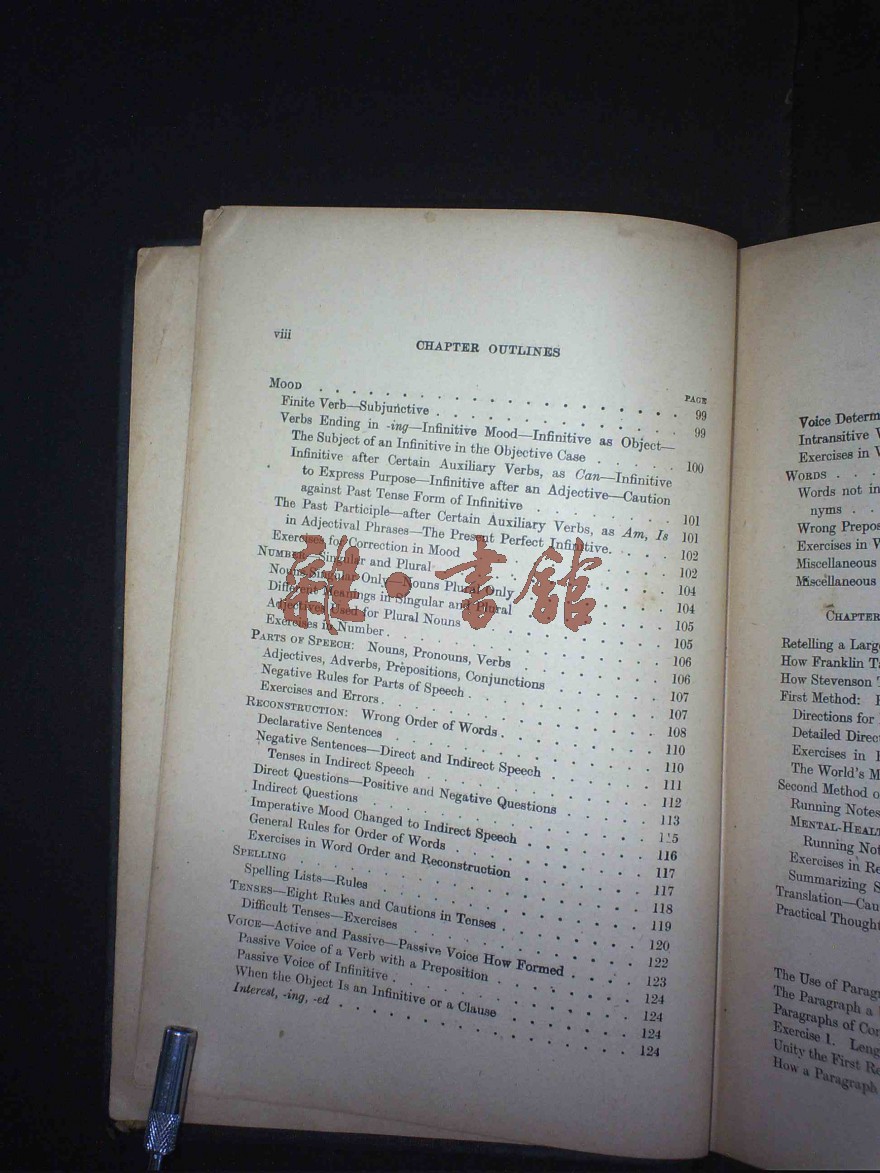 viii
CHAPTER OUTLINES
PAGE
MOOD . . . . . . . . . . . . . . . . . . 99
Finite Verb—Subjunctive . . . . . . . . . . . . 99
Verbs Ending in -ing—Infinitive Mood—Infinitive as Object—
The Subject of an Infinitive in the Objective Case . . . . . 100
Infinitive after Certain Auxiliary Verbs, as Can—Infinitive
to Express Purpose—Infinitive after an Adjective—Caution
against Past Tense Form of Infinitive . . . . . . . 101
The Past Participle—after Certain Auxiliary Verbs, as Am, Is 101
in Adjectival Phrases—The Present Perfect Infinitive. . . . 102
Exercises for Correction in Mood . . . . . . . . . 102
NUMBER—Singular and Plural . . . . . . . . . . 104
Nouns Singular Only—Nouns Plural Only . . . . . . . 104
Different Meanings in Singular and Plural . . . . . . . 105
Adjectives Used for Plural Nouns . . . . . . . . . 105
Exercises in Number . . . . . . . . . . . . 106
PARTS OF SPEECH: Nouns, Pronouns, Verbs . . . . . . . 106
Adjectives, Adverbs, Prepositions, Conjunctions . . . . . 107
Negative Rules for Parts of Speech . . . . . . . . . 107
Exercises and Errors . . . . . . . . . . . . 108
RECONSTRUCTION: Wrong Order of Words . . . . . . . . 110
Declarative Sentences . . . . . . . . . . . . 110
Negative Sentences—Direct and Indirect Speech . . . . . 111
Tenses in Indirect Speech . . . . . . . . . . . 112
Direct Questions—Positive and Negative Questions . . . . . 113
Indirect Questions . . . . . . . . . . . . . 115
Imperative Mood Changed to Indirect Speech . . . . . . 116
General Rules for Order of Words . . . . . . . . . 117
Exercises in Word Order and Reconstruction . . . . . . 117
SPELLING . . . . . . . . . . . . . . . . 118
Spelling Lists—Rules . . . . . . . . . . . . 119
TENSES—Eight Rules and Cautions in Tenses . . . . . . . 120
Difficult Tenses—Exercises . . . . . . . . . . . 122
VOICE—Active and Passive—Passive Voice How Formed . . . . 123
Passive Voice of a Verb with a Preposition . . . . . . . 124
Passive Voice of Infinitive . . . . . . . . . . . 124
When the Object Is an Infinitive or a Clause . . . . . . 124
Interest, -ing, -ed . . . . . . . . . . . . . 124
雜·書館
Voice Determ
Intransitive V
Exercises in V
WORDS . . .
Words not in
nyms . .
Wrong Prepos
Exercises in W
Miscellaneous
Miscellaneous
CHAPTER
Retelling a Large
How Franklin Ta
How Stevenson T
First Method:
Directions for
Detailed Direct
Exercises in
The World's M
Second Method o
Running Notes
MENTAL-HEALT
Running Not
Exercises in Re
Summarizing S
Translation—Cau
Practical Thought
The Use of Paragr
The Paragraph a
Paragraphs of Con
Exercise 1. Leng
Unity the First Re
How a Paragraph